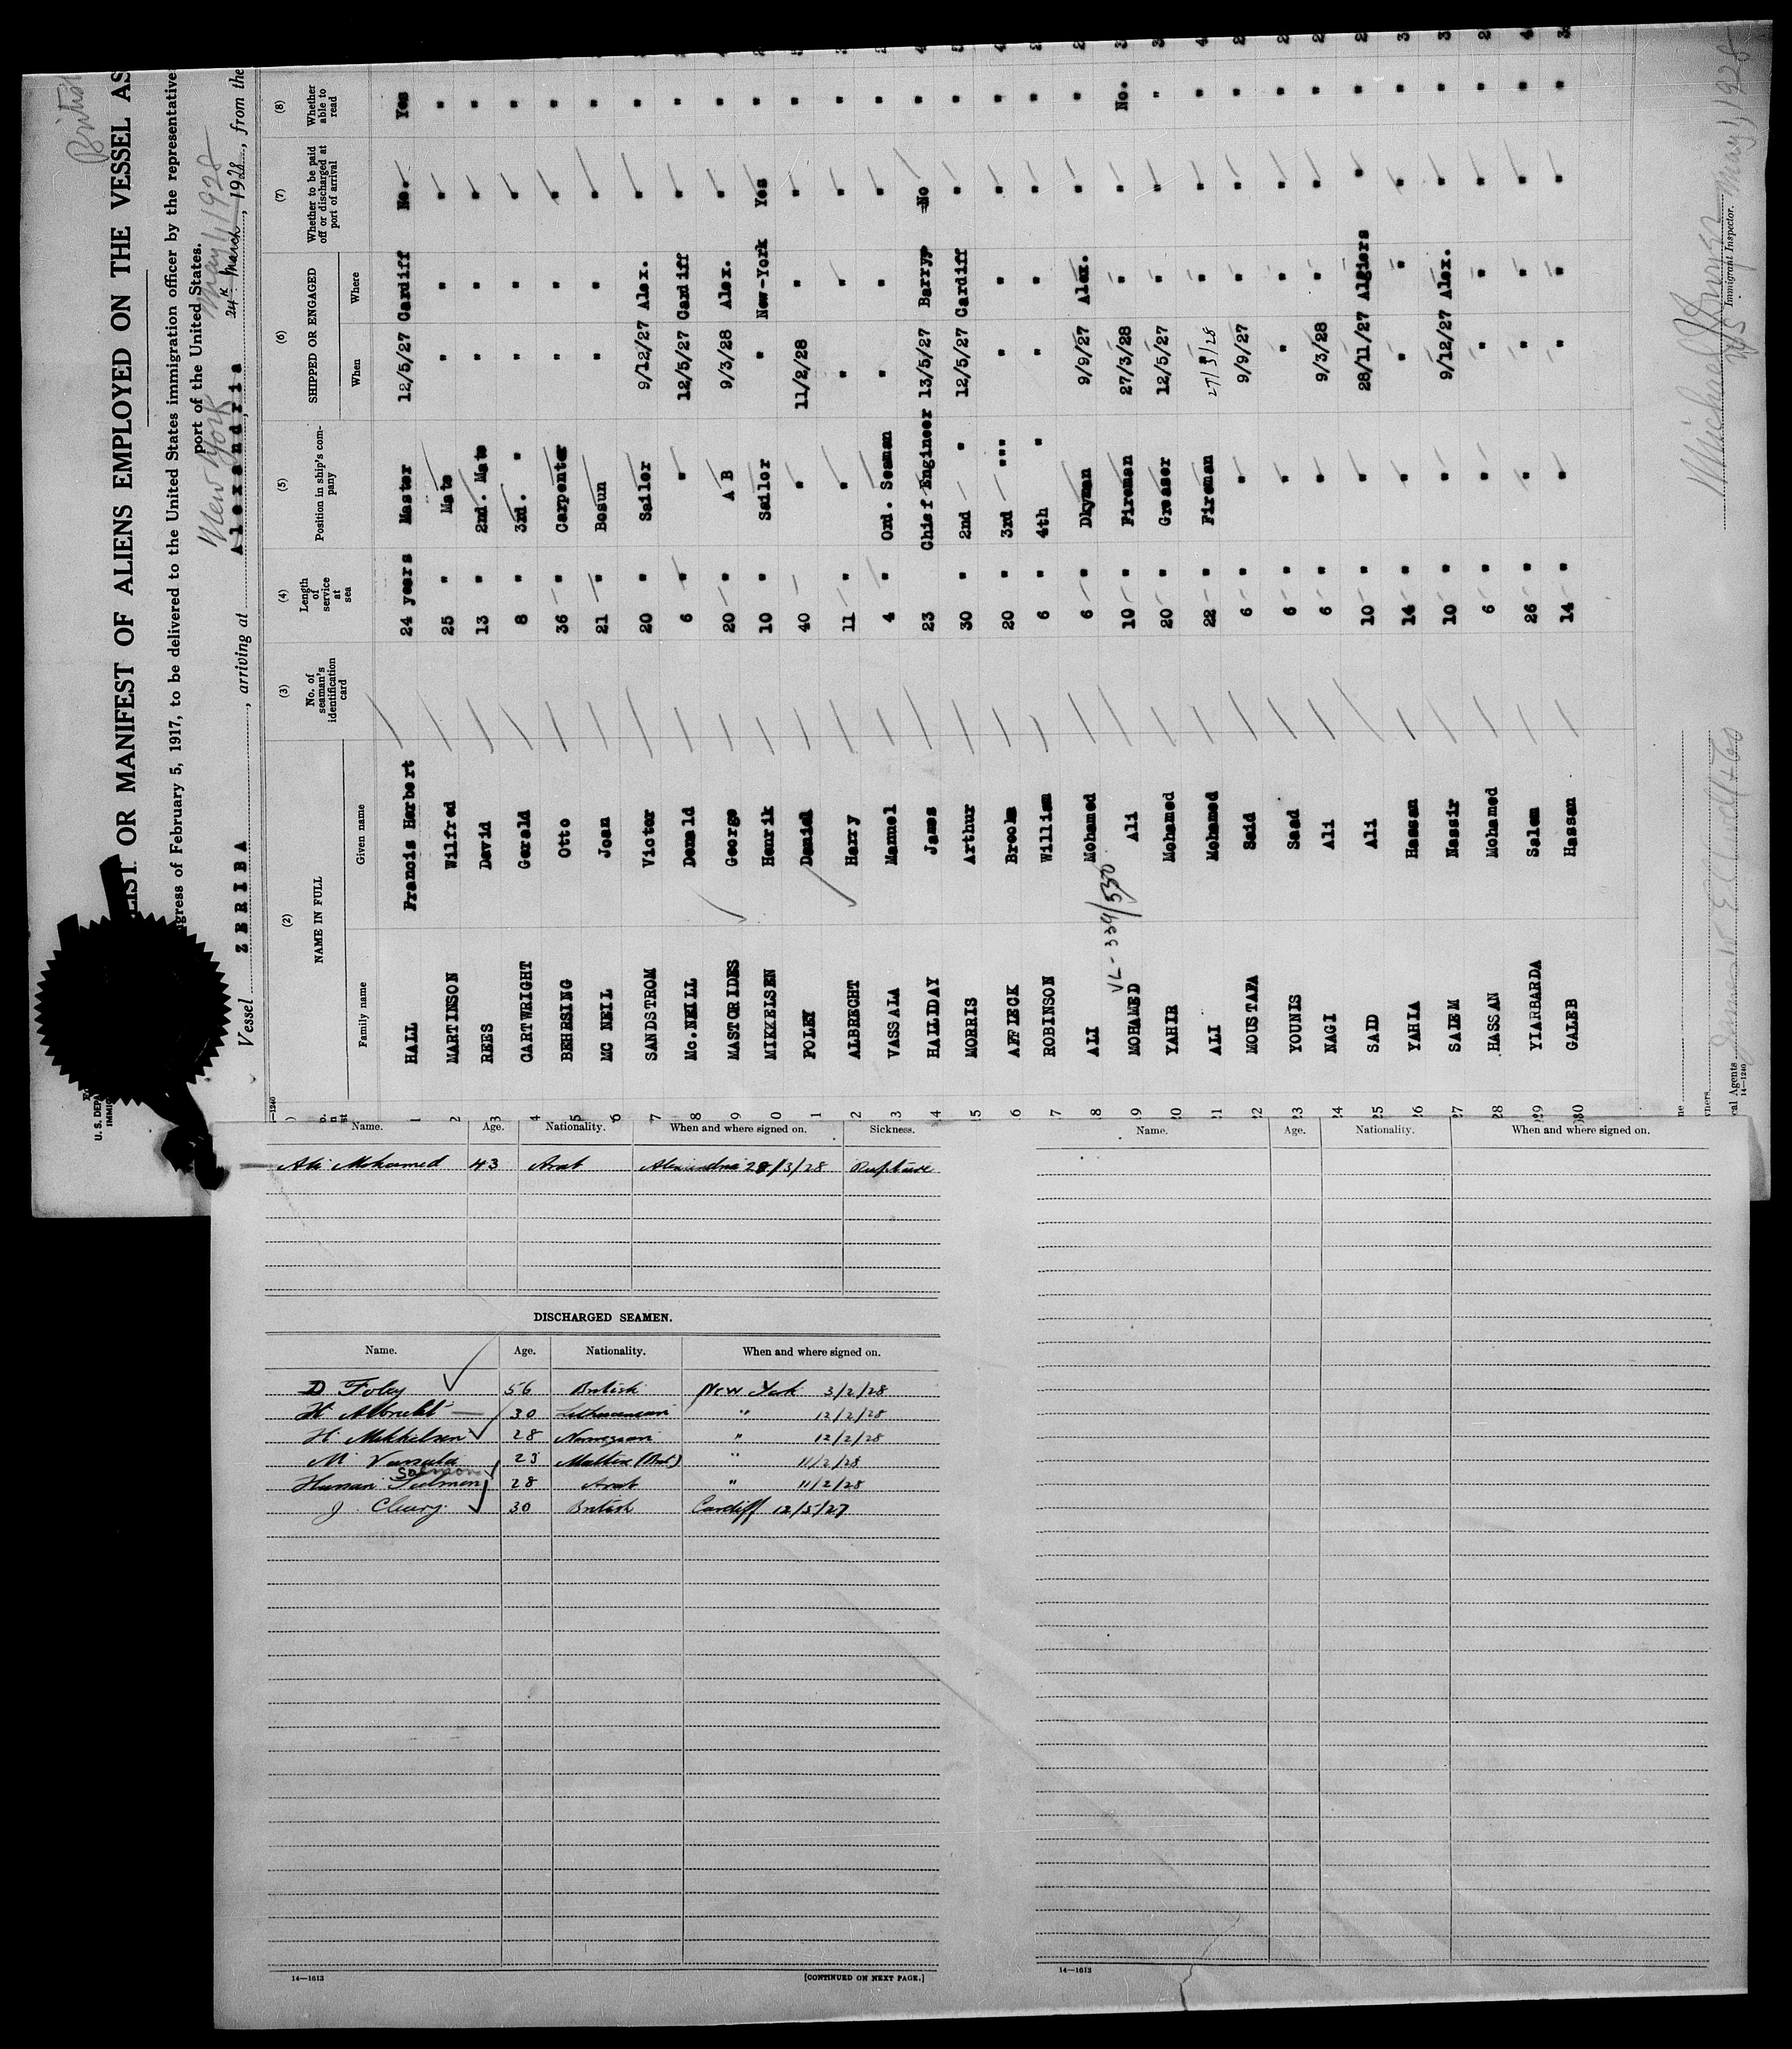 British
LIST OR MANIFEST OF ALIENS EMPLOYED ON THE VESSEL AS
gress of February 5, 1917, to be delivered to the United States immigration officer by the representative
port of the United States.
New York May 1 1928
Vessel ZERIBA, arriving at Alexandria 24th March, 1928, from the
(2) (3) (4) (5) (6) (7) (8)
NAME IN FULL No. of seaman's identification card Length of service at sea Position in ship's company SHIPPED OR ENGAGED Whether to be paid off or discharged at port of arrival Whether able to read
Family name Given name When Where
HALL Francis Herbert 24 years Master 12/5/27 Cardiff No. Yes
2 MARTINSON Wilfred 25 " Mate " " " "
3 REES David 13 " 2nd. Mate " " " "
4 CARTWRIGHT Gerald 8 " 3rd. " " " " "
5 BEHRSING Otto 36 " Carpenter " " " "
6 MC NEIL Joan 21 " Bosun " " " "
7 SANDSTROM Victor 20 " Sailor 9/12/27 Alex. " "
8 Mc.NEILL Donald 6 " " 12/5/27 Cardiff " "
9 MASTORIDES George 20 " A B 9/3/28 Alex. " "
0 MIKKELSEN Henrik 10 " Sailor " New-York Yes "
1 FOLEY Daniel 40 " 11/2/28 " " "
2 ALBRECHT Harry 11 " " " " " "
3 VASSALA Manuel 4 " Ord. Seaman " " " "
4 HALIDAY James 23 Chief Engineer 13/5/27 Barry No "
5 MORRIS Arthur 30 " 2nd " 12/5/27 Cardiff " "
6 AFFLECK Broole 20 " 3rd " " " " "
7 ROBINSON William 6 " 4th " " " " "
8 ALI Mohamed 6 " Dkyman 9/9/27 Alex. " "
VL-339/530
9 MOHAMED Ali 10 " Fireman 27/3/28 " " No.
20 YAHIR Mohamed 20 " Greaser 12/5/27 " " "
21 ALI Mohamed 22 " Fireman 27/3/28 " " "
22 MOUSTAFA Said 6 " " 9/9/27 " " "
23 YOUNIS Saad 6 " " " " " "
24 NAGI Ali 6 " " 9/3/28 " " "
25 SAID Ali 10 " " 28/11/27 Algiers " "
26 YAHIA Hassan 14 " " " " " "
27 SALEM Nassir 10 " " 9/12/27 Alex. " "
28 HASSAN Mohamed 6 " " " " " "
29 YIARBARDA Salem 26 " " " " " "
30 GALEB Hassan 14 " " " " " "
Immigrant Inspector. May 1, 1928
14—1240
Name. Age. Nationality. When and where signed on. Sickness. Name. Age. Nationality. When and where signed on.
Ali Mohamed 43 Arab Alexandria 28/3/28 Rupture
DISCHARGED SEAMEN.
Name. Age. Nationality. When and where signed on.
D Foley 56 British New York 3/2/28
H Albrecht 30 Lithuanian " 12/2/28
H. Mikkelsen 28 Norwegian " 12/2/28
M Vassala 23 Maltese (Brit) " 11/2/28
Hassan 28 Arab " 11/2/28
J. Cleary. 30 British Cardiff 12/5/27
14—1613 [CONTINUED ON NEXT PAGE.] 14—1613